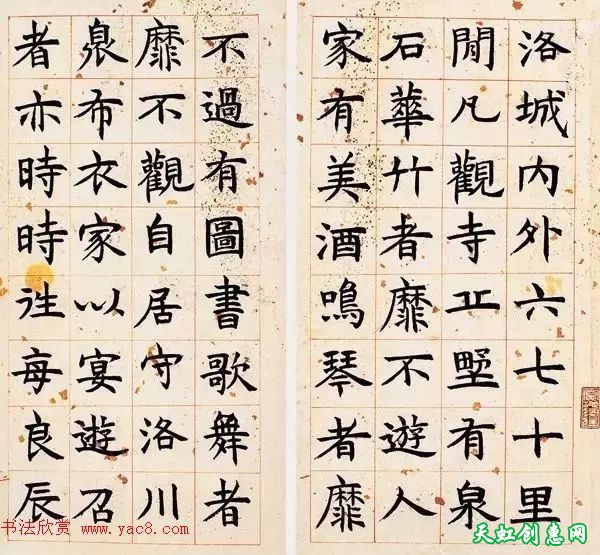 洛城內外六七十里
閒凡觀寺丘墅有泉
石華竹者靡不遊人
家有美酒鳴琴者靡
不過有圖書歌舞者
靡不觀自居守洛川
臮布衣家以宴遊召
者亦時時往每良辰
书法欣赏 www.yac8.com
天虹创意网